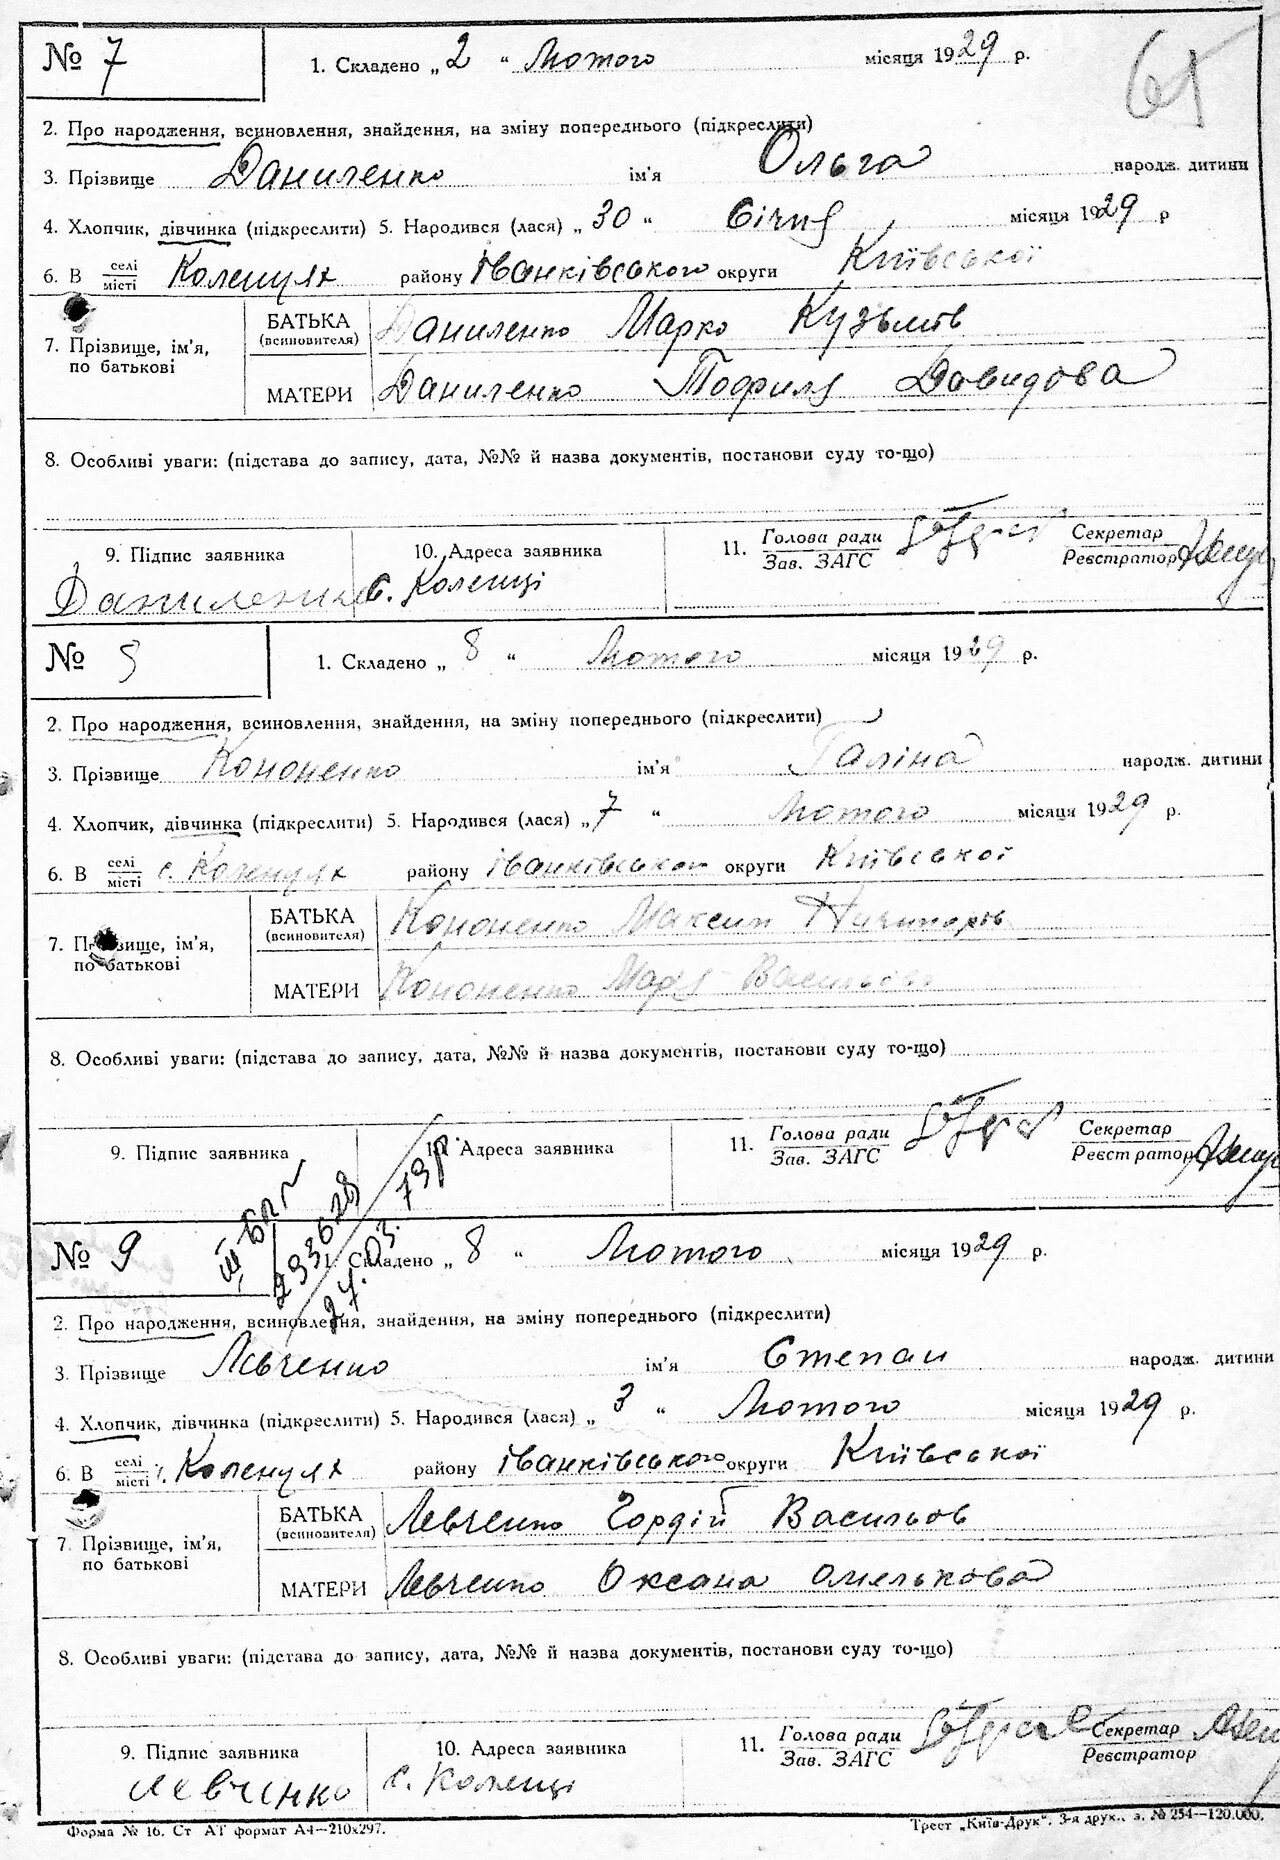 № 7
1. Складено „ 2 “ Лютого місяця 1929 р.
65
2. Про народження, всиновлення, знайдення, на зміну попереднього (підкреслити)
3. Прізвище Даниленко ім'я Ольга народж. дитини
4. Хлопчик, дівчинка (підкреслити) 5. Народився (лася) „ 30 “ Січня місяця 1929 р
6. В селі місті Коленцях району Іванківського округи Київської
7. Прізвище, ім'я, по батькові
БАТЬКА (всиновителя) Даниленко Марко Кузьмів
МАТЕРИ Даниленко Тофиля Давидова
8. Особливі уваги: (підстава до запису, дата, №№ й назва документів, постанови суду то-що)
9. Підпис заявника 10. Адреса заявника 11. Голова ради Зав. ЗАГС Секретар Реєстратор
Даниленко с. Коленці
№
1. Складено „ 8 “ Лютого місяця 1929 р.
2. Про народження, всиновлення, знайдення, на зміну попереднього (підкреслити)
3. Прізвище Кононенко ім'я Галіна народж. дитини
4. Хлопчик, дівчинка (підкреслити) 5. Народився (лася) „ 7 “ Лютого місяця 1929 р.
6. В селі місті с. Коленцях району Іванківського округи Київської
7. Прізвище, ім'я, по батькові
БАТЬКА (всиновителя) Кононенко Максим Ничипорів
МАТЕРИ Кононенко Марія Васильова
8. Особливі уваги: (підстава до запису, дата, №№ й назва документів, постанови суду то-що)
9. Підпис заявника 10. Адреса заявника 11. Голова ради Зав. ЗАГС Секретар Реєстратор
233628
27.03.73р
№ 9
1. Складено „ 8 “ Лютого місяця 1929 р.
2. Про народження, всиновлення, знайдення, на зміну попереднього (підкреслити)
3. Прізвище Левченко ім'я Степан народж. дитини
4. Хлопчик, дівчинка (підкреслити) 5. Народився (лася) „ 3 “ Лютого місяця 1929 р.
6. В селі місті Коленцях району Іванківського округи Київської
7. Прізвище, ім'я, по батькові
БАТЬКА (всиновителя) Левченко Гордій Васильов
МАТЕРИ Левченко Оксана Омелькова
8. Особливі уваги: (підстава до запису, дата, №№ й назва документів, постанови суду то-що)
9. Підпис заявника 10. Адреса заявника 11. Голова ради Зав. ЗАГС Секретар Реєстратор
Левченко с. Коленці
Форма № 16. Ст АТ формат А4—210х297.
Трест „Київ-Друк“. 3-я друк., з. № 254—120.000.